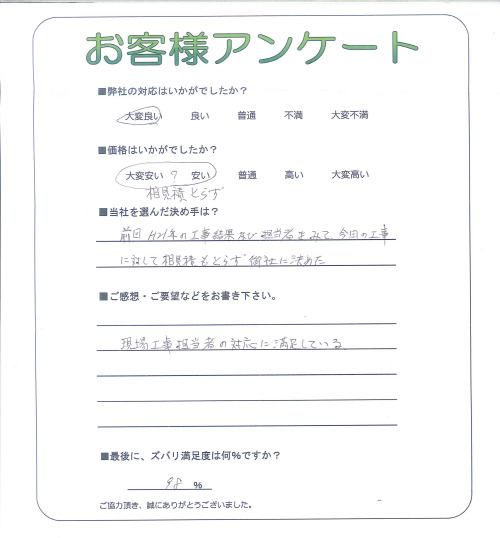 お客様アンケート
■弊社の対応はいかがでしたか？
大変良い 良い 普通 不満 大変不満
■価格はいかがでしたか？
大変安い ? 安い 普通 高い 大変高い
相見積とらず
■当社を選んだ決め手は？
前回H21年の工事結果及び担当者をみて、今回の工事
に対して相見積もとらず御社に決めた
■ご感想・ご要望などをお書き下さい。
現場工事担当者の対応に満足している
■最後に、ズバリ満足度は何%ですか？
98 %
ご協力頂き、誠にありがとうございました。